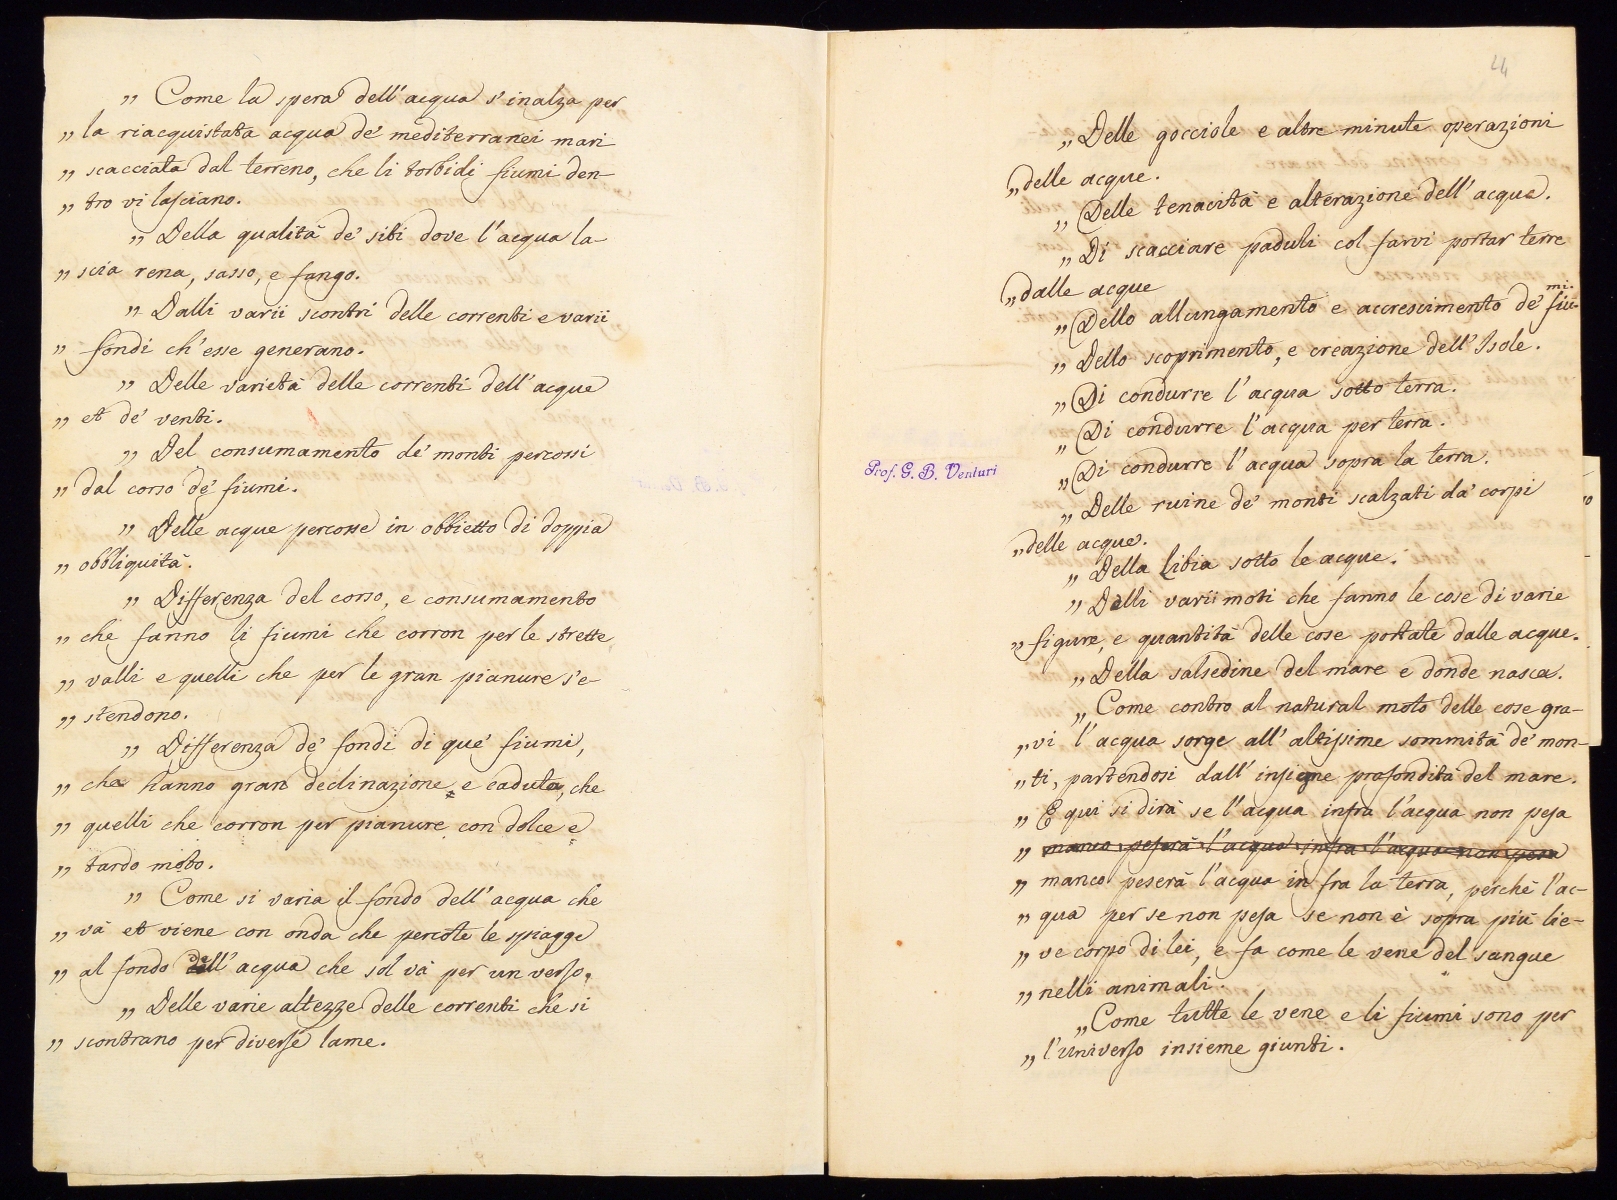 „ Come la spera dell'acqua s'inalza per
„ la riacquistata acqua de' mediterranei mari
„ scacciata dal terreno, che li torbidi fiumi den-
„ tro vi lasciano.
„ Della qualità de' siti dove l'acqua la-
„ scia rena, sasso, e fango.
„ Dalli varii scontri delle correnti e varii
„ fondi ch'esse generano.
„ Delle varietà delle correnti dell'acque
„ et de' venti.
„ Del consumamento de' monti percossi
„ dal corso de' fiumi.
„ Delle acque percosse in obbietto di doppia
„ obbliquità.
„ Differenza del corso, e consumamento
„ che fanno li fiumi che corron per le strette
„ valli e quelli che per le gran pianure s'e-
„ stendono.
„ Differenza de' fondi di que' fiumi,
„ che hanno gran declinazione e caduta, che
„ quelli che corron per pianure con dolce e
„ tardo moto.
„ Come si varia il fondo dell'acqua che
„ và et viene con onda che percote le spiagge
„ al fondo dell'acqua che sol và per un verso.
„ Delle varie altezze delle correnti che si
„ scontrano per diverse lame.
Prof. G. B. Venturi
24
„ Delle gocciole e altre minute operazioni
„ delle acque.
„ Delle tenacità e alterazione dell'acqua.
„ Di scacciare paduli col farvi portar terre
„ dalle acque
„ Dello allungamento e accrescimento de' fiu-mi.
„ Dello scoprimento, e creazione dell'Isole.
„ Di condurre l'acqua sotto terra.
„ Di condurre l'acqua per terra.
„ Di condurre l'acqua sopra la terra.
„ Delle ruine de' monti scalzati da' corpi
„ delle acque.
„ Della Libia sotto le acque.
„ Dalli varii moti che fanno le cose di varie
„ figure, e quantità delle cose portate dalle acque.
„ Della salsedine del mare e donde nasca.
„ Come contro al natural moto delle cose gra-
„ vi l'acqua sorge all'altissime sommità de' mon-
„ ti, partendosi dall'insigne profondità del mare.
„ E qui si dirà se l'acqua infra l'acqua non pesa
„ manco peserà l'acqua infra l'acqua non pesa
„ manco peserà l'acqua in fra la terra, perchè l'ac-
„ qua per se non pesa se non è sopra più lie-
„ ve corpo di lei, e fa come le vene del sangue
„ nelli animali.
„ Come tutte le vene e li fiumi sono per
„ l'universo insieme giunti.